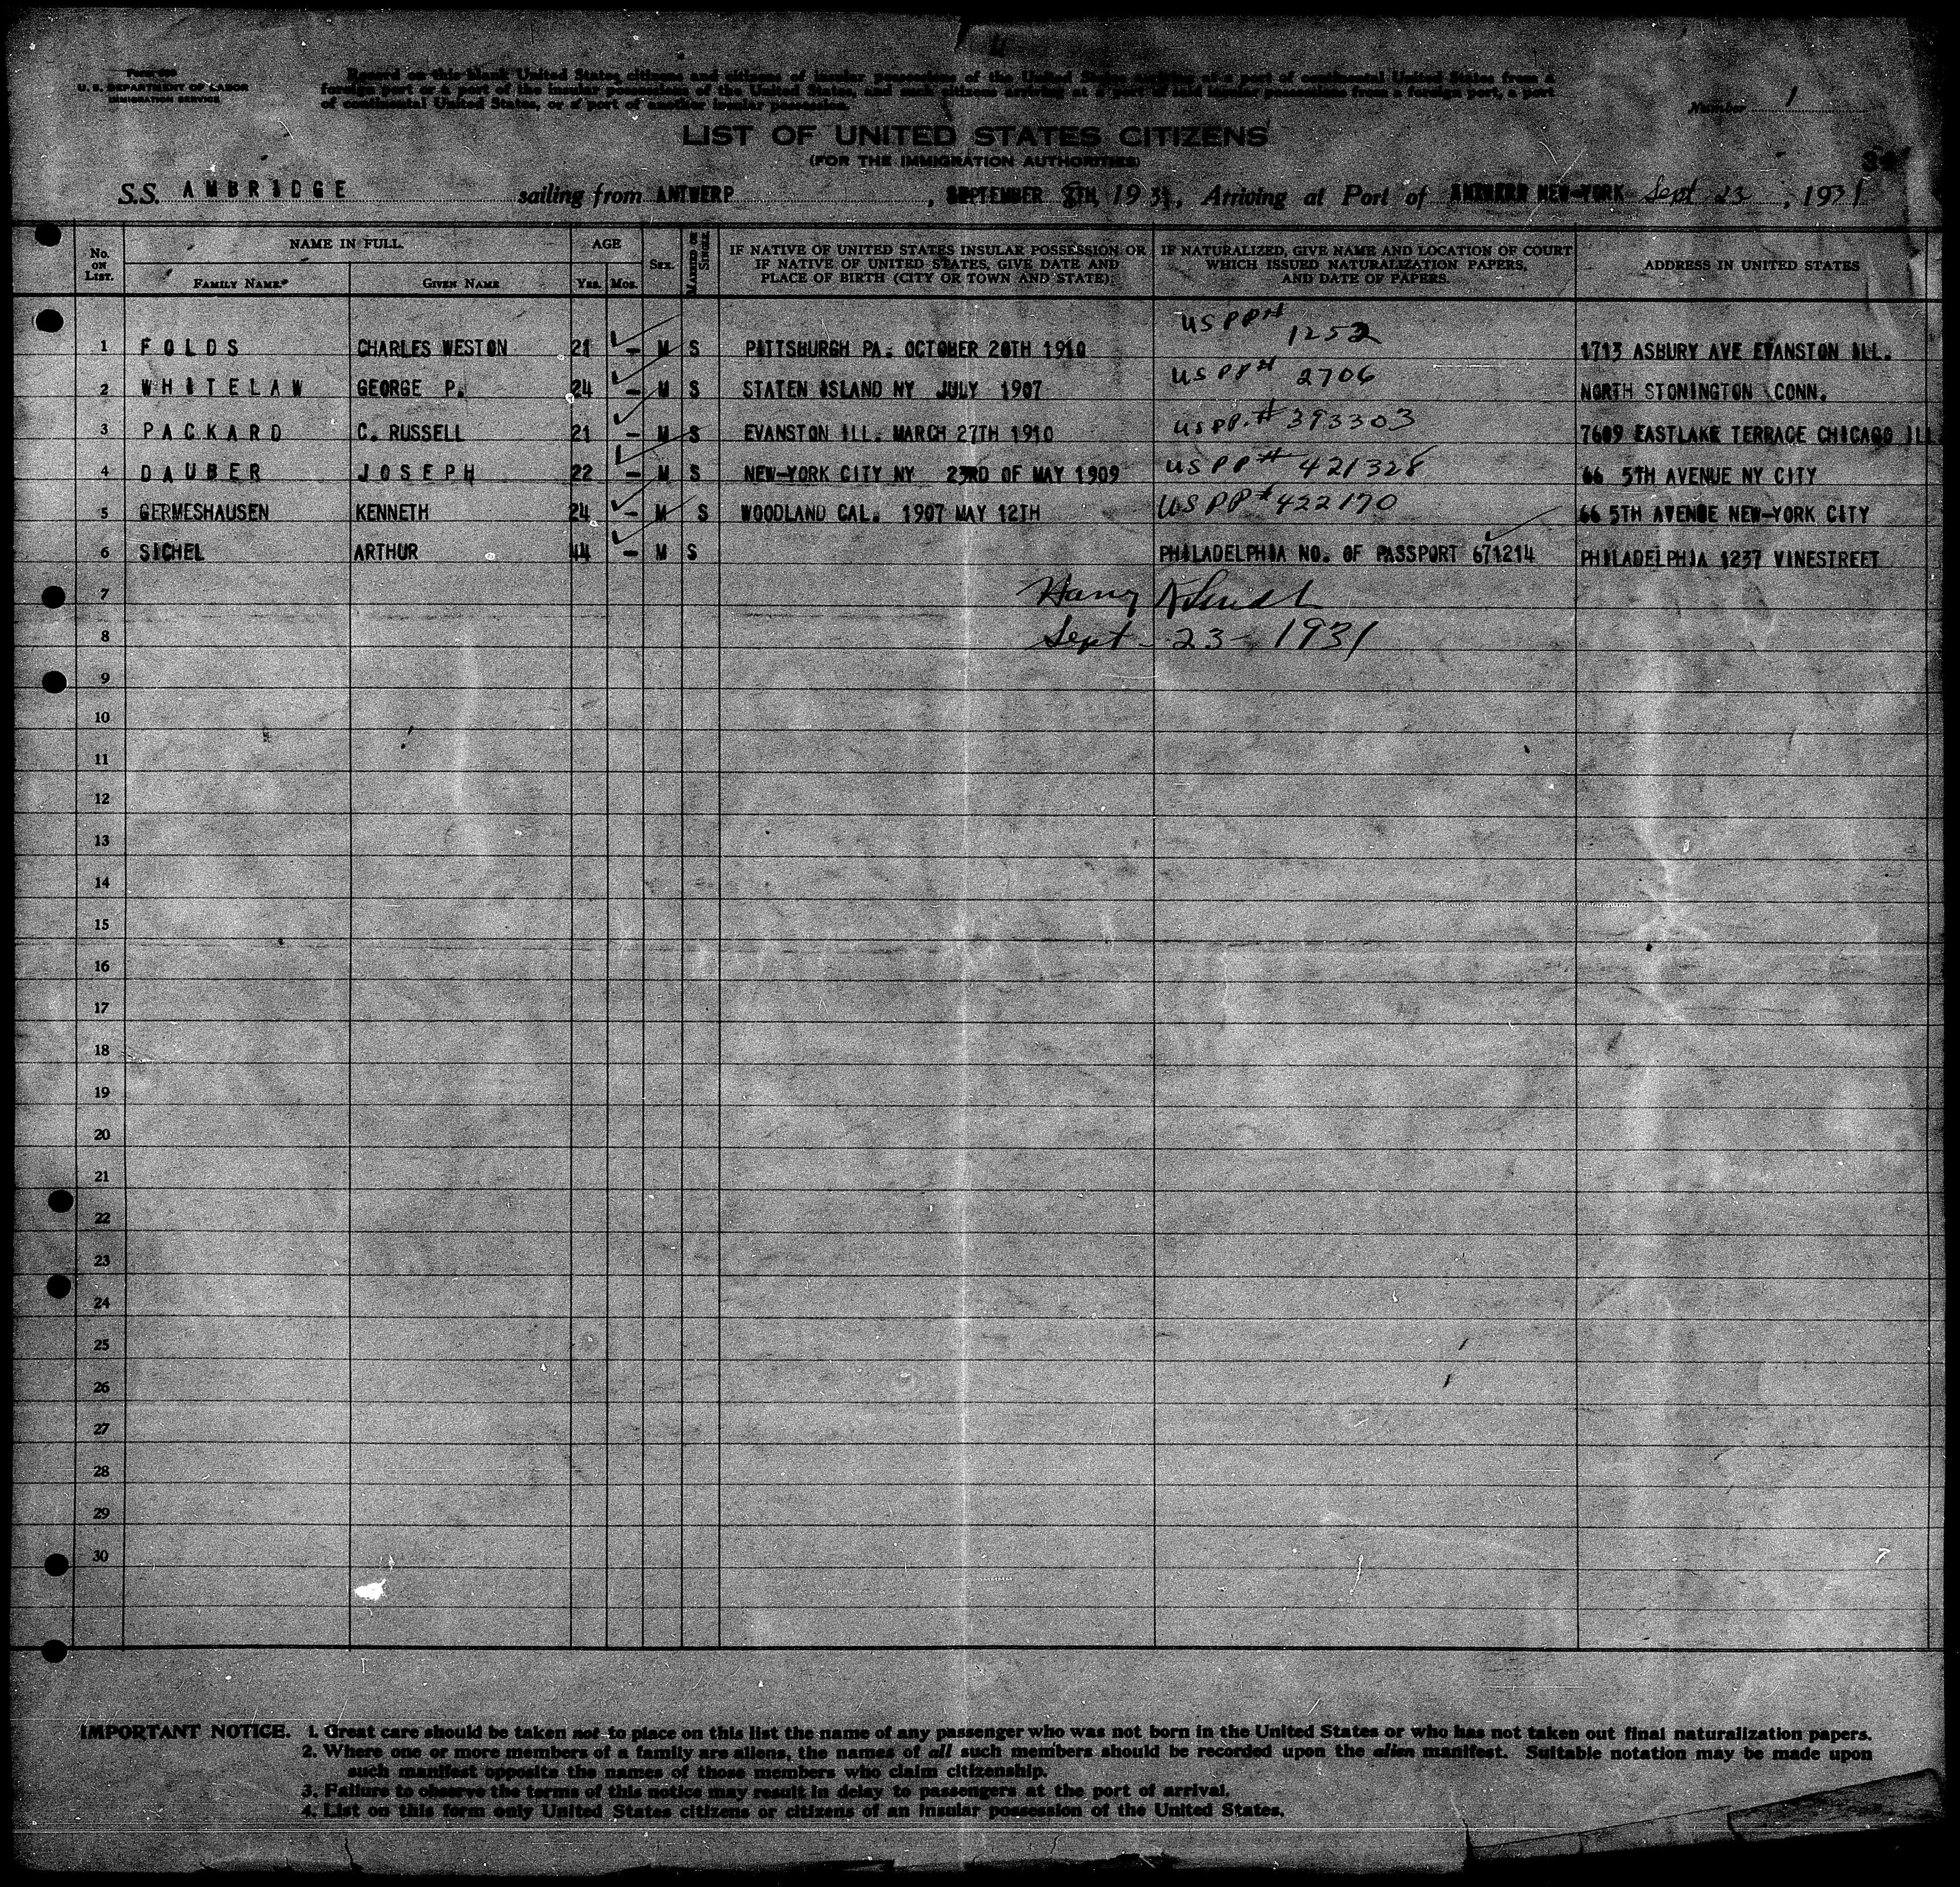 U. S. DEPARTMENT OF LABOR
IMMIGRATION SERVICE
Record on this blank United States citizens and citizens of insular possessions of the United States arriving at a port of continental United States from a
foreign port or a port of the insular possessions of the United States, and such citizens arriving at a port of said insular possessions from a foreign port, a port
of continental United States, or a port of another insular possession.
Number 1
LIST OF UNITED STATES CITIZENS
(FOR THE IMMIGRATION AUTHORITIES)
S.S. AMBRIDGE sailing from ANTWERP, SEPTEMBER 8TH, 1931, Arriving at Port of NEW-YORK Sept 23, 1931
No. ON LIST. NAME IN FULL. AGE SEX. MARRIED OR SINGLE. IF NATIVE OF UNITED STATES INSULAR POSSESSION OR IF NATIVE OF UNITED STATES, GIVE DATE AND PLACE OF BIRTH (CITY OR TOWN AND STATE). IF NATURALIZED, GIVE NAME AND LOCATION OF COURT WHICH ISSUED NATURALIZATION PAPERS, AND DATE OF PAPERS. ADDRESS IN UNITED STATES
FAMILY NAME GIVEN NAME YRS. MOS.
1 FOLDS CHARLES WESTON 21 - M S PITTSBURGH PA. OCTOBER 20TH 1910 US PP# 1252 1713 ASBURY AVE EVANSTON ILL.
2 WHITELAW GEORGE P. 24 - M S STATEN ISLAND NY JULY 1907 US PP# 2706 NORTH STONINGTON CONN.
3 PACKARD C. RUSSELL 21 - M S EVANSTON ILL. MARCH 27TH 1910 US PP. # 393303 7609 EASTLAKE TERRACE CHICAGO ILL
4 DAUBER JOSEPH 22 - M S NEW-YORK CITY NY 23RD OF MAY 1909 US PP# 421328 66 5TH AVENUE NY CITY
5 GERMESHAUSEN KENNETH 24 - M S WOODLAND CAL. 1907 MAY 12TH US PP# 422170 66 5TH AVENUE NEW-YORK CITY
6 SICHEL ARTHUR 44 - M S PHILADELPHIA NO. OF PASSPORT 671214 PHILADELPHIA 1237 VINESTREET
7 Harry
8 Sept - 23 - 1931
9
10
11
12
13
14
15
16
17
18
19
20
21
22
23
24
25
26
27
28
29
30
IMPORTANT NOTICE. 1. Great care should be taken not to place on this list the name of any passenger who was not born in the United States or who has not taken out final naturalization papers.
2. Where one or more members of a family are aliens, the names of all such members should be recorded upon the alien manifest. Suitable notation may be made upon
such manifest opposite the names of those members who claim citizenship.
3. Failure to observe the terms of this notice may result in delay to passengers at the port of arrival.
4. List on this form only United States citizens or citizens of an insular possession of the United States.